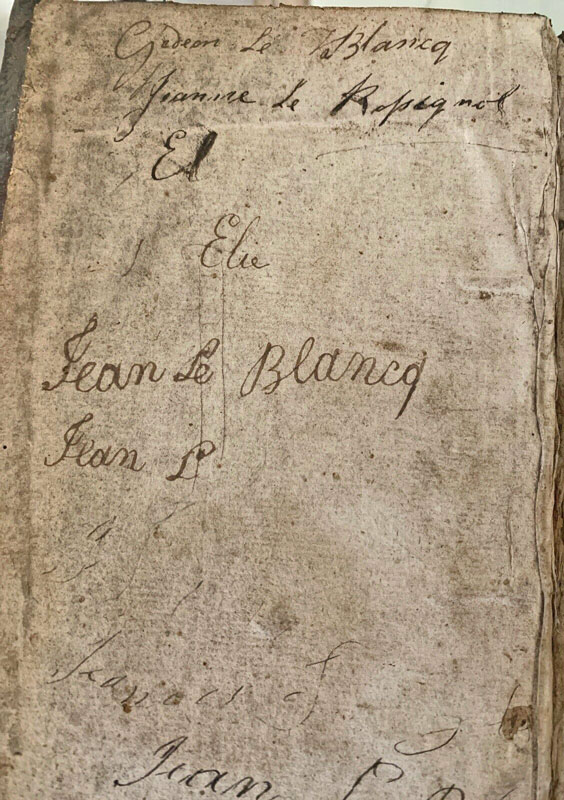 Gideon Le Blancq
Jeanne Le Rossignol
El
Elie
Jean Le Blancq
Jean L
Jean